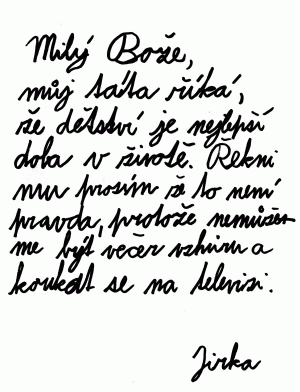 Milý Bože,
můj táta říká,
že dětství je nejlepší
doba v životě. Řekni
mu prosím že to není
pravda, protože nemůžem
me být večer vzhůru a
koukat se na televizi.
Jirka